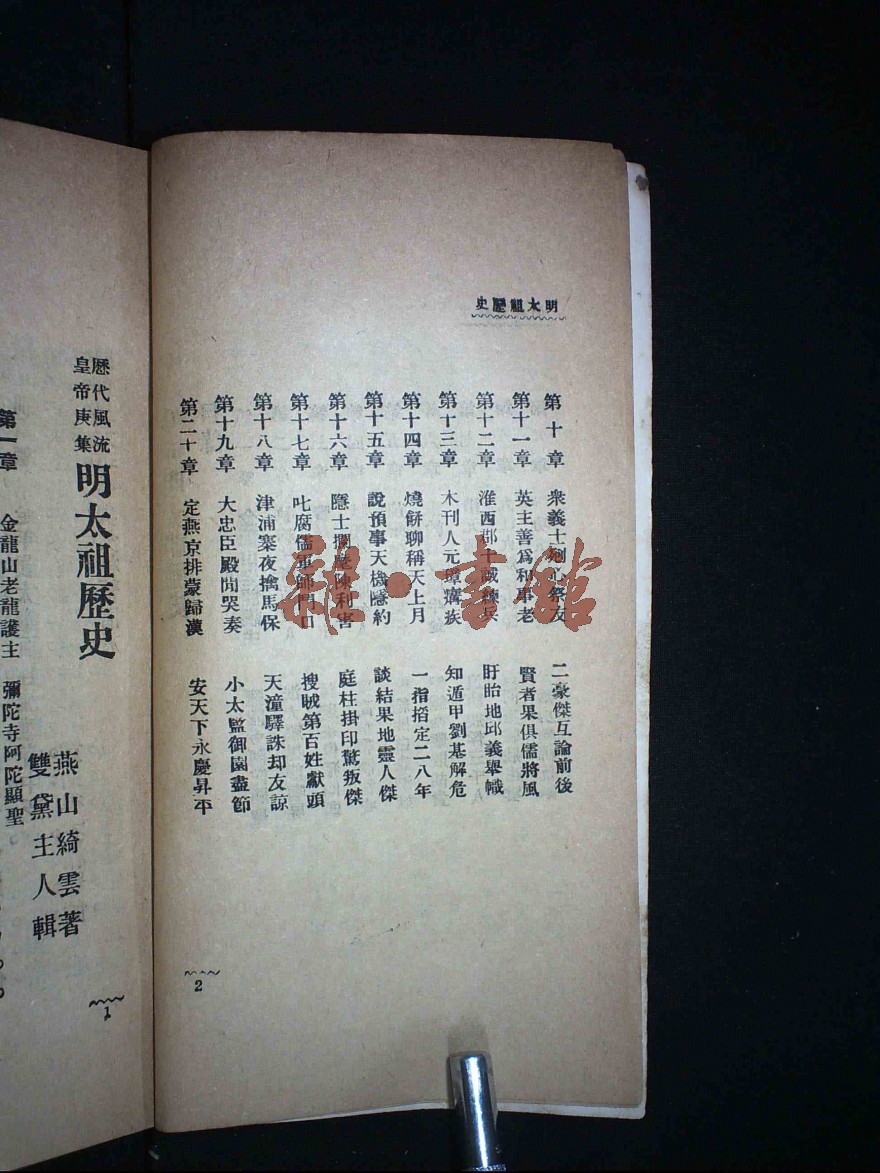 明太祖歷史
第十章 衆義士剜心祭友 二豪傑互論前後
第十一章 英主善爲和事老 賢者果俱儒將風
第十二章 淮西郡 練兵 盱眙地邱義舉幟
第十三章 木刊人元璋 族 知遁甲劉基解危
第十四章 燒餅聊稱天上月 一指掐定二八年
第十五章 說預事天機隱約 談結果地靈人傑
第十六章 隱士攔壓陳利害 庭柱掛印驚叛傑
第十七章 叱腐儒軍師鬥口 搜賊第百姓獻頭
第十八章 津浦寨夜擒馬保 天潼驛誅却友諒
第十九章 大忠臣殿聞哭奏 小太監御園盡節
第二十章 定燕京排蒙歸漢 安天下永慶昇平
2
歷代風流
皇帝庚集
明太祖歷史
燕山綺雲著
雙黛主人輯
第一章 金龍山老龍護主 彌陀寺阿陀顯聖
1
雜·書館